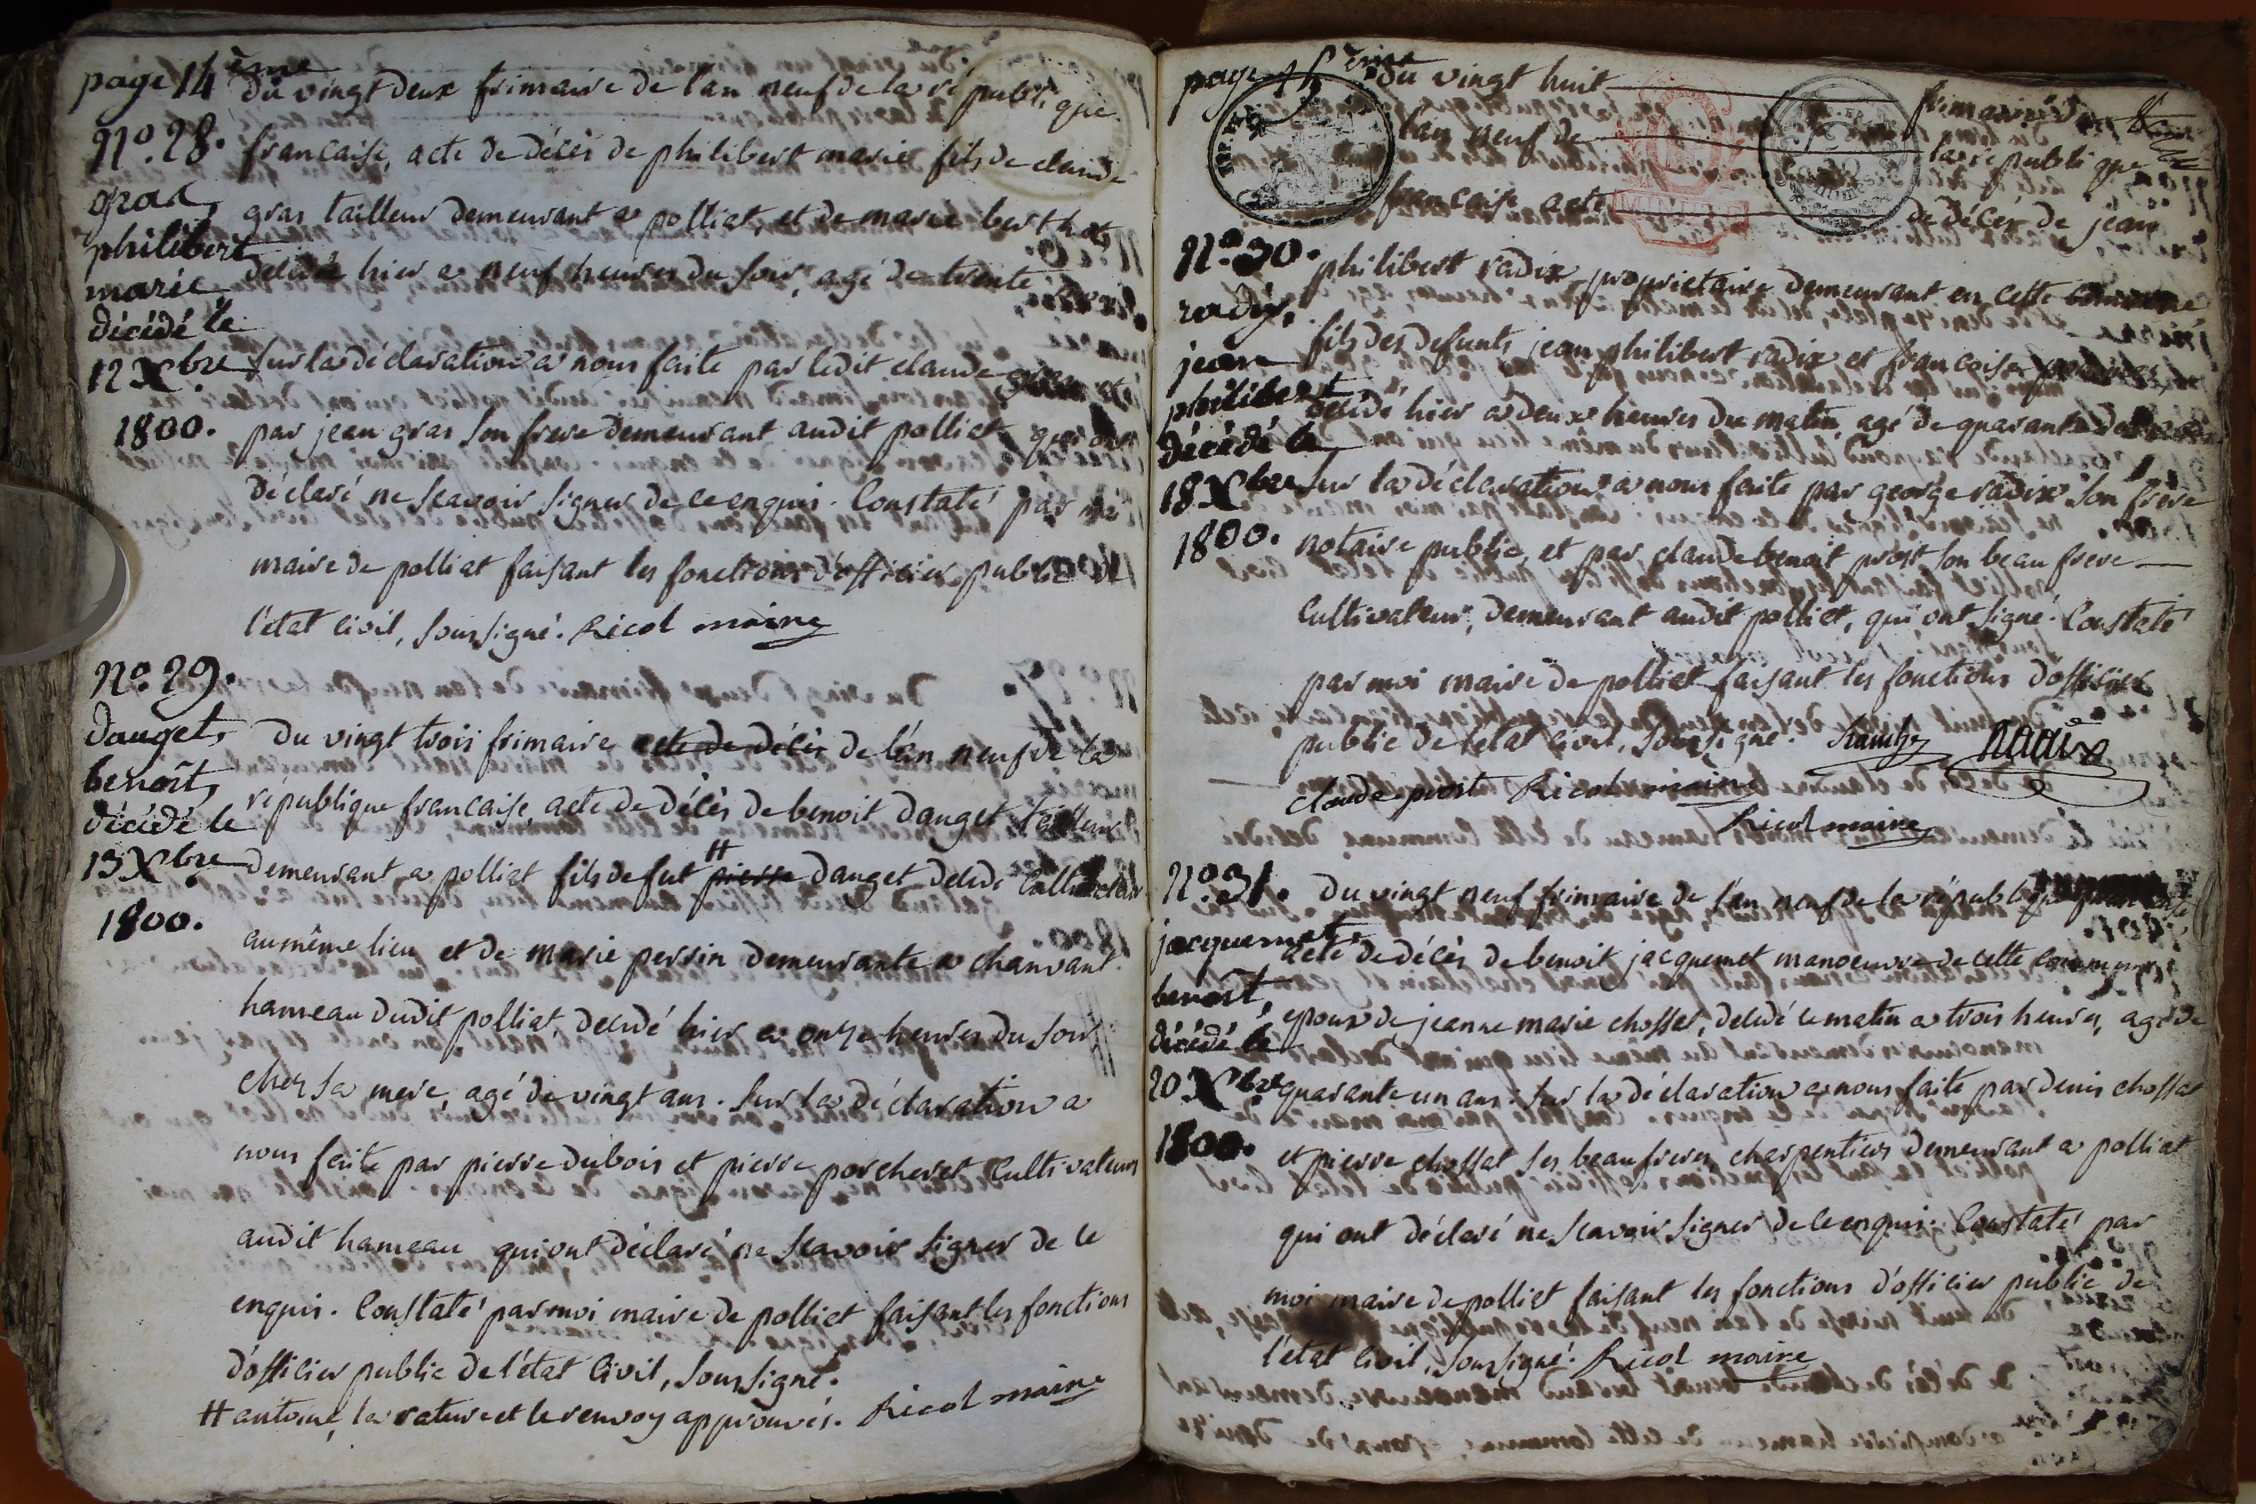 page 14ème
du vingt deux frimaire de l'an neuf de la république
N°. 28.
francaise, acte de décès de philibert marie fils de claude
gras,
gras tailleur demeurant a polliat, et de marie berthet,
philibert
décédé hier a neuf heures du soir, agé de trente
marie
décédé le
12 Xbre
sur la déclaration a nous faite par ledit claude gras et
1800.
par jean gras son frere demeurant audit polliat qui ont
déclaré ne scavoir signer de ce enquis. Constaté par moi
maire de polliat faisant les fonctions d'officier public de
l'état civil, soussigné. Ricol maire
N°. 29.
danget,
du vingt trois frimaire acte de décès de l'an neuf de la
benoît,
république francaise, acte de décès de benoit danget
décédé le
13 Xbre
demeurant a polliat fils de fut pierre H danget décédé Cultivateur
1800.
au même lieu et de marie perrin demeurante a chanvant
hameau dudit polliat, décédé hier a onze heures du soir
chez sa mere, agé de vingt ans. Sur la déclaration a
nous faite par pierre dubois et pierre porcheret Cultivateurs
audit hameau qui ont déclaré ne scavoir signer de ce
enquis. Constaté par moi maire de polliat faisant les fonctions
d'officier public de l'état Civil, soussigné.
H antoine, la rature et le renvoy approuvés. Ricol maire
page 15ème
du vingt huit frimaire de
l'an neuf de la republique
francaise acte de décès de jean
N°. 30.
philibert radix proprietaire demeurant en cette commune
radix,
fils des defunts jean philibert radix et francoise
jean
philibert
décédé hier a deux heures du matin, agé de quarante deux ans
décédé le
18 Xbre
sur la déclaration a nous faite par george radix son frère
1800.
notaire public, et par claude benoit prost son beau frere
Cultivateur, demeurant audit polliat, qui ont signé. Constaté
par moi maire de polliat faisant les fonctions d'officier
public de l'etat Civil, soussigné. Radix
claude prost Ricol maire
Ricol maire
N°. 31.
du vingt neuf frimaire de l'an neuf de la république francaise
jacquemet,
acte de décès de benoit jacquemet manoeuvre de cette Commune,
benoît,
epoux de jeanne marie chossat, décédé ce matin a trois heures, agé de
décédé le
20 Xbre
quarante un ans. Sur la déclaration a nous faite par denis chossat
1800.
et pierre chossat ses beau freres, charpentiers demeurant a polliat
qui ont déclaré ne scavoir signer de ce enquis. Constaté par
moi maire de polliat faisant les fonctions d'officier public de
l'état Civil, soussigné. Ricol maire